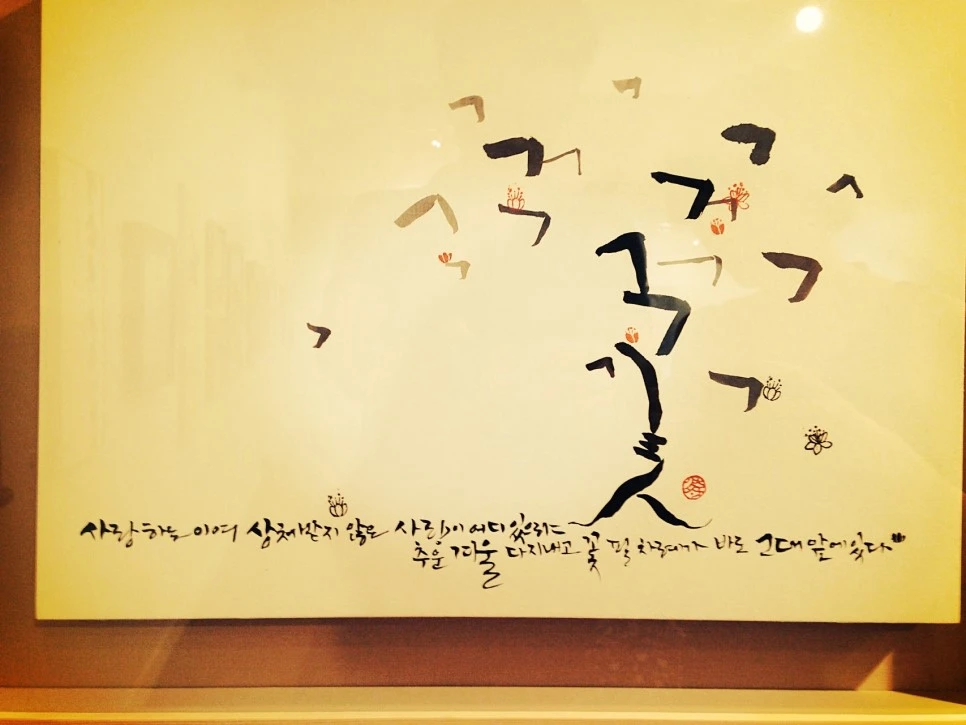 사랑하는 이여 상처받지 않은 사랑이 어디 있으랴
추운 겨울 다 지내고 꽃 필 차례가 바로 그대 앞에 있다